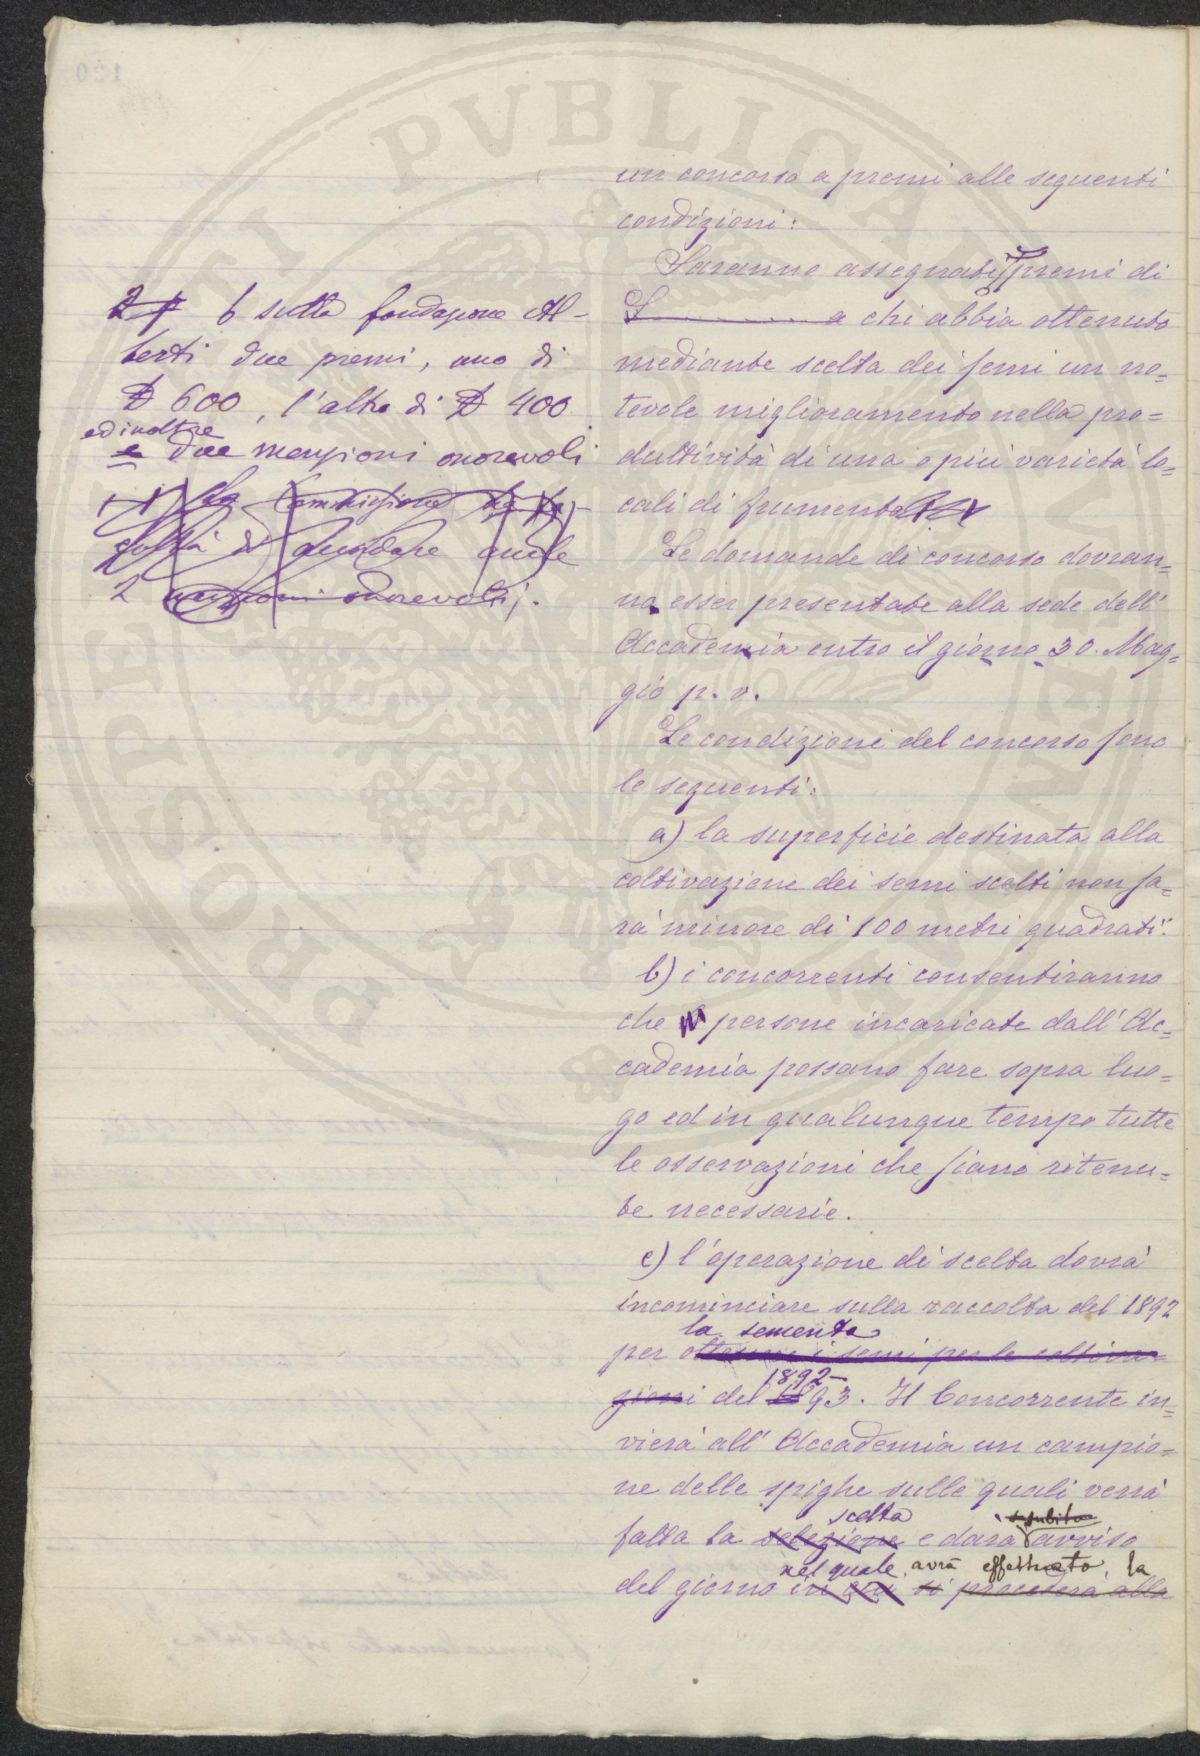 un concorso a premi alle seguenti
condizioni:
Saranno assegnati premi di
L a chi abbia ottenuto
mediante scelta dei semi un no=
tevole miglioramento nella pro=
duttività di una o più varietà lo=
cali di frumento
Le domande di concorso dovran=
no esser presentate alla sede dell'
Accademia entro il giorno 30. Mag=
gio p. v.
Le condizioni del concorso sono
le seguenti:
a) la superficie destinata alla
coltivazione dei semi scelti non sa=
rà minore di 100 metri quadrati.
b) i concorrenti consentiranno
che persone incaricate dall'Ac=
cademia possano fare sopra luo=
go ed in qualunque tempo tutte
le osservazioni che siano ritenu=
te necessarie.
c) l'operazione di scelta dovrà
incominciare sulla raccolta del 1892
la sementa
per ottenere i semi per le coltiva=
1892-
zioni del 1893. Il Concorrente in=
vierà all'Accademia un campio=
ne delle spighe sulle quali verrà
scelta subito
fatta la selezione e darà avviso
nel quale avrà effettuato la
del giorno in cui si procederà alla
sulla fondazione Al-
berti due premi, uno di
£ 600, l'altro di £ 400
ed inoltre
e due menzioni onorevoli
La Commissione ha fa-
coltà di accordare anche
2 menzioni onorevoli.
PROSPERITATI PVBLICAE
120